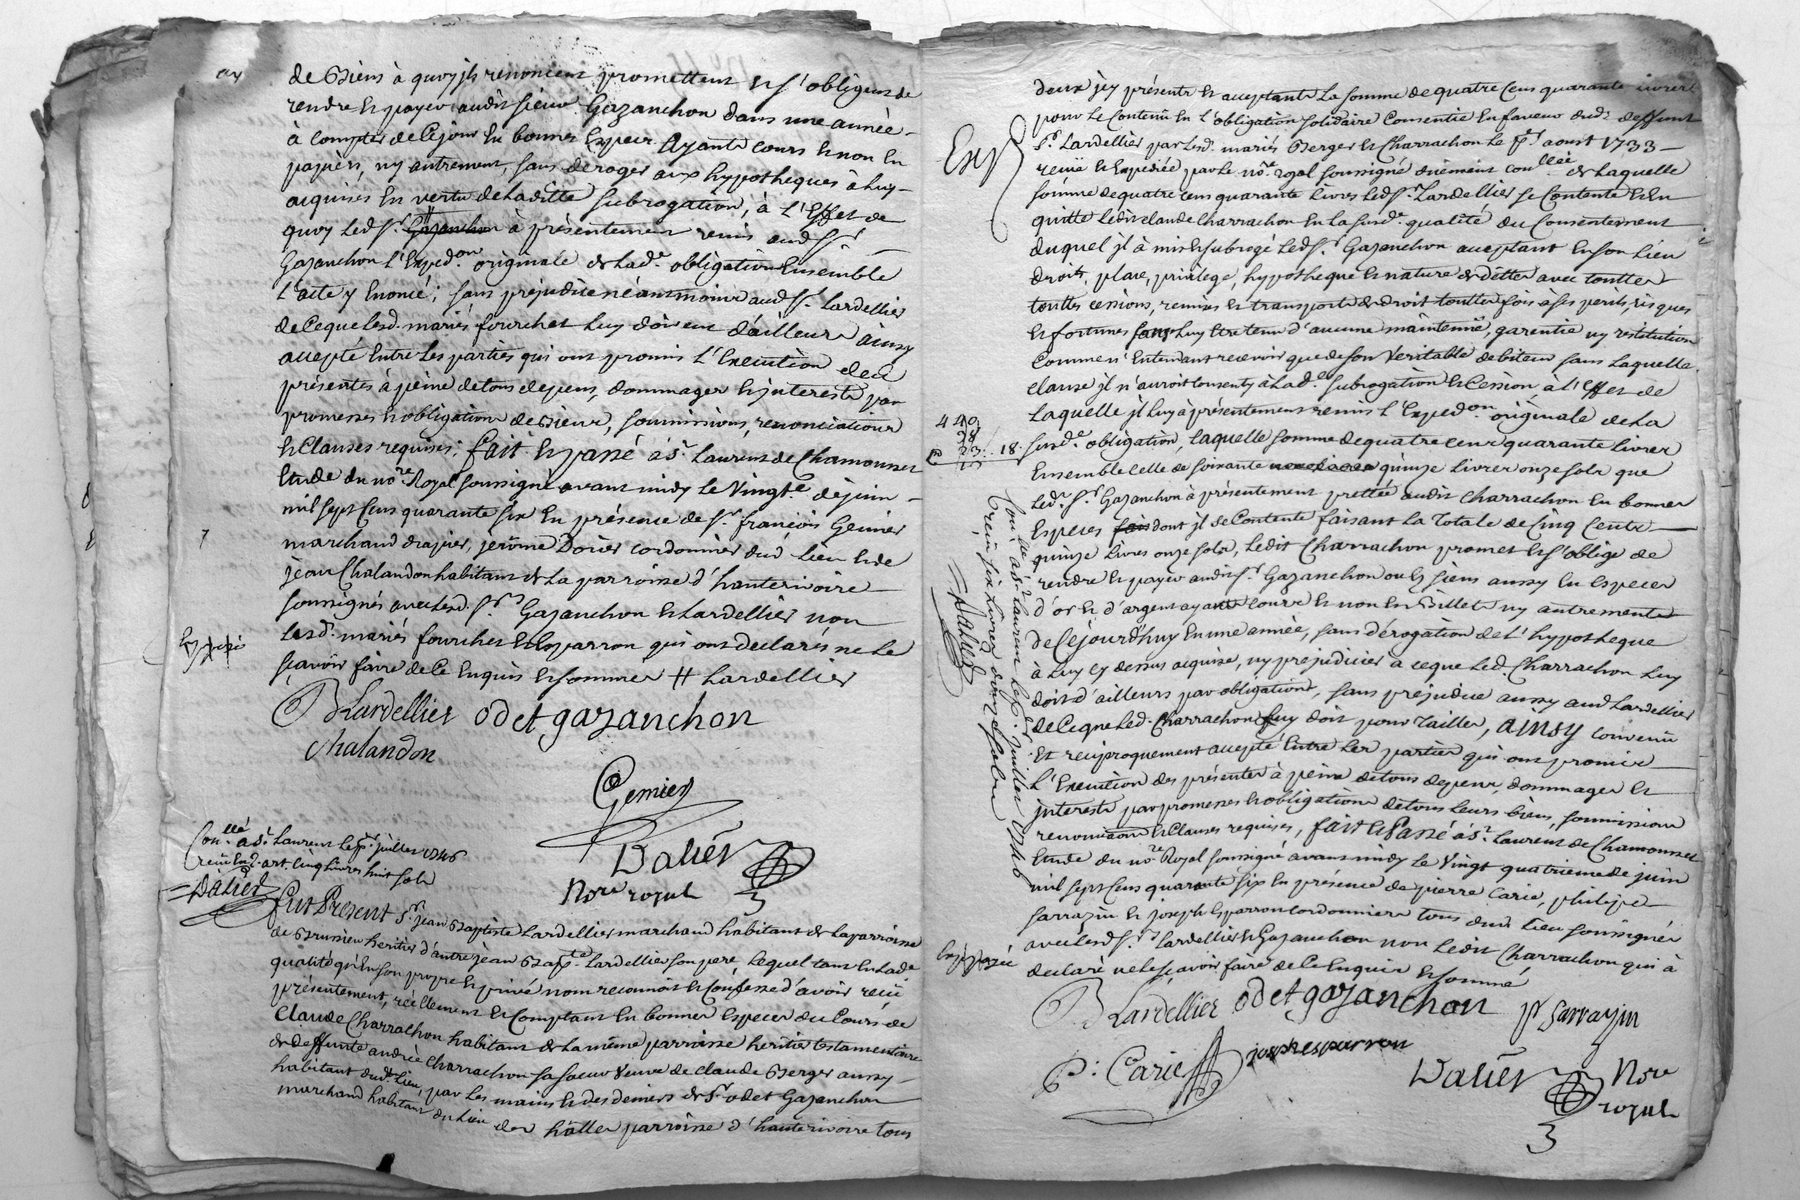 de Biens à quoy jls renoncent promettent et s'obligent de
rendre et payer audit sieur Gazanchon dans une année
à compter de ce jour en bonnes Especes Ayants cours et non en
papiers, ny autrement, sans deroger aux hypotheques à luy
acquises en vertu de laditte subrogation, à l'Effet de
quoy led. Sr. Gazanchon à présentement remis aud. Sr.
Gazanchon l'Exped.on originale de lad.e obligation Ensemble
l'acte y Enoncé; sans préjudice néantmoins aud. Sr. Lardellier
de ce que lesd. mariés fourchet luy doivent d'ailleurs ainsy
accepté Entre les parties qui ont promis l'Execution des
présentes à peine de tous depens, dommages et jnterests par
promesses et obligation de Biens, soumissions, renonciations
et Clauses requises; fait et passé à St. Laurent de Chamousset
Etude du no.re Royal soussigné avant midy le Vingt.e de juin
mil sept cens quarante six En présence de Sr. françois Genier
marchand drapier, jerôme Dorier cordonnier dud. lieu et de
jean Chalandon habitant de la parroisse d'hauterivoire
soussignés avec lesd. Srs. Gazanchon et Lardellier non
lesd. mariés fourchet et Esparron qui ont declarés ne le
sçavoir faire de ce Enquis et sommés # Lardellier
BLardellier odet gazanchon
chalandon
Genier
Dalier
No.re royal
Con.llé à St. Laurent le p.er juillet 1746
receu cinq livres huit sols
Dalier
Fut Present Sr. jean Baptiste Lardellier marchand habitant de la parroisse
de Brussieu heritier d'autre jean Bap.te Lardellier son pere lequel tant en lad.e
qualité qu'En son propre et privé nom reconnoit et confesse d'avoir reçu
présentement, réellement et comptant En bonnes Especes du Cours de
Claude Charrachon habitant de la même parroisse heritier testamentaire
de deffunte andrée Charrachon sa soeur veuve de claude Berger aussy
habitant dud. lieu, par les mains et des deniers de Sr. odet Gazanchon
marchand habitant du lieu des halles parroisse d'hauterivoire tous
deux jcy présents et acceptants la somme de quatre Cens quarante livres
pour le Contenu En l'obligation solidaire Consentie En faveur dud. deffunt
Sr. Lardellier par lesd. mariés Berger et Charrachon le p.er aoust 1733
Exp
receüe et Expediée par le no.re royal soussigné duement con.llée de laquelle
somme de quatre cens quarante livres led. Sr. Lardellier se Contente et En
quitte ledit claude Charrachon En la susd.e qualité du Consentement
duquel jl à mis et subrogé led. Sr. Gazanchon acceptant En son lieu
droits, place, privilege, hypotheque et nature de dette avec touttes
touttes cessions, remises et transports de droit touttes fois a ses perils, risques
et fortunes sans luy Etre tenu d'aucune maintenüe, garentie ny restitution
Comme n'Entendant recevoir que de son veritable debiteur sans laquelle
clause jl n'auroit consenty à lad.e subrogation et Cession à l'Effet de
laquelle jl luy à présentement remis l'Exped.on originale de la
susd.e obligation, laquelle somme de quatre cens quarante livres
Ensemble celle de soixante quinze livres onze sols que
led. Sr. Gazanchon à présentement prettée audit Charrachon En bonnes
Especes dont jl se Contente faisant la Totale de Cinq Cents
quinze livres onze sols, ledit Charrachon promet et s'oblige de
rendre et payer audit Sr. Gazanchon ou es siens aussy En especes
d'or et d'argent ayants cours et non En Billets ny autrement
de Cejourd'huy En une année, sans dérogation de l'hypotheque
à luy cy dessus acquise, ny préjudicier à ce que led. Charrachon luy
doit d'ailleurs par obligations, sans prejudice aussy aud. Lardellier
de ce que led. Charrachon luy doit pour Tailles, AINSY convenu
Et reciproquement accepté Entre les parties qui ont promis
l'Execution des présentes à peine de tous depens, dommages et
jnterests par promesses et obligations de tous leurs biens, soumissions
renonciations et Clauses requises, fait et Passé à St. Laurent de Chamousset
Etude du no.re Royal soussigné avant midy le Vingt quatrieme de juin
mil sept cens quarante six En présence de pierre Carie, philipe
sarrazin et joseph Esparron cordonniers tous dud. Lieu soussignés
avec lesd. Srs. Lardellier et Gazanchon non ledit Charrachon qui à
declaré ne le sçavoir faire de ce Enquis et sommé
Con.llé à St. laurent le p.er juillet 1746
receu six livres douze sols
Dalier
BLardellier odet gazanchon p sarrazin
P. Carie joseph esparron
Dalier No.re
royal